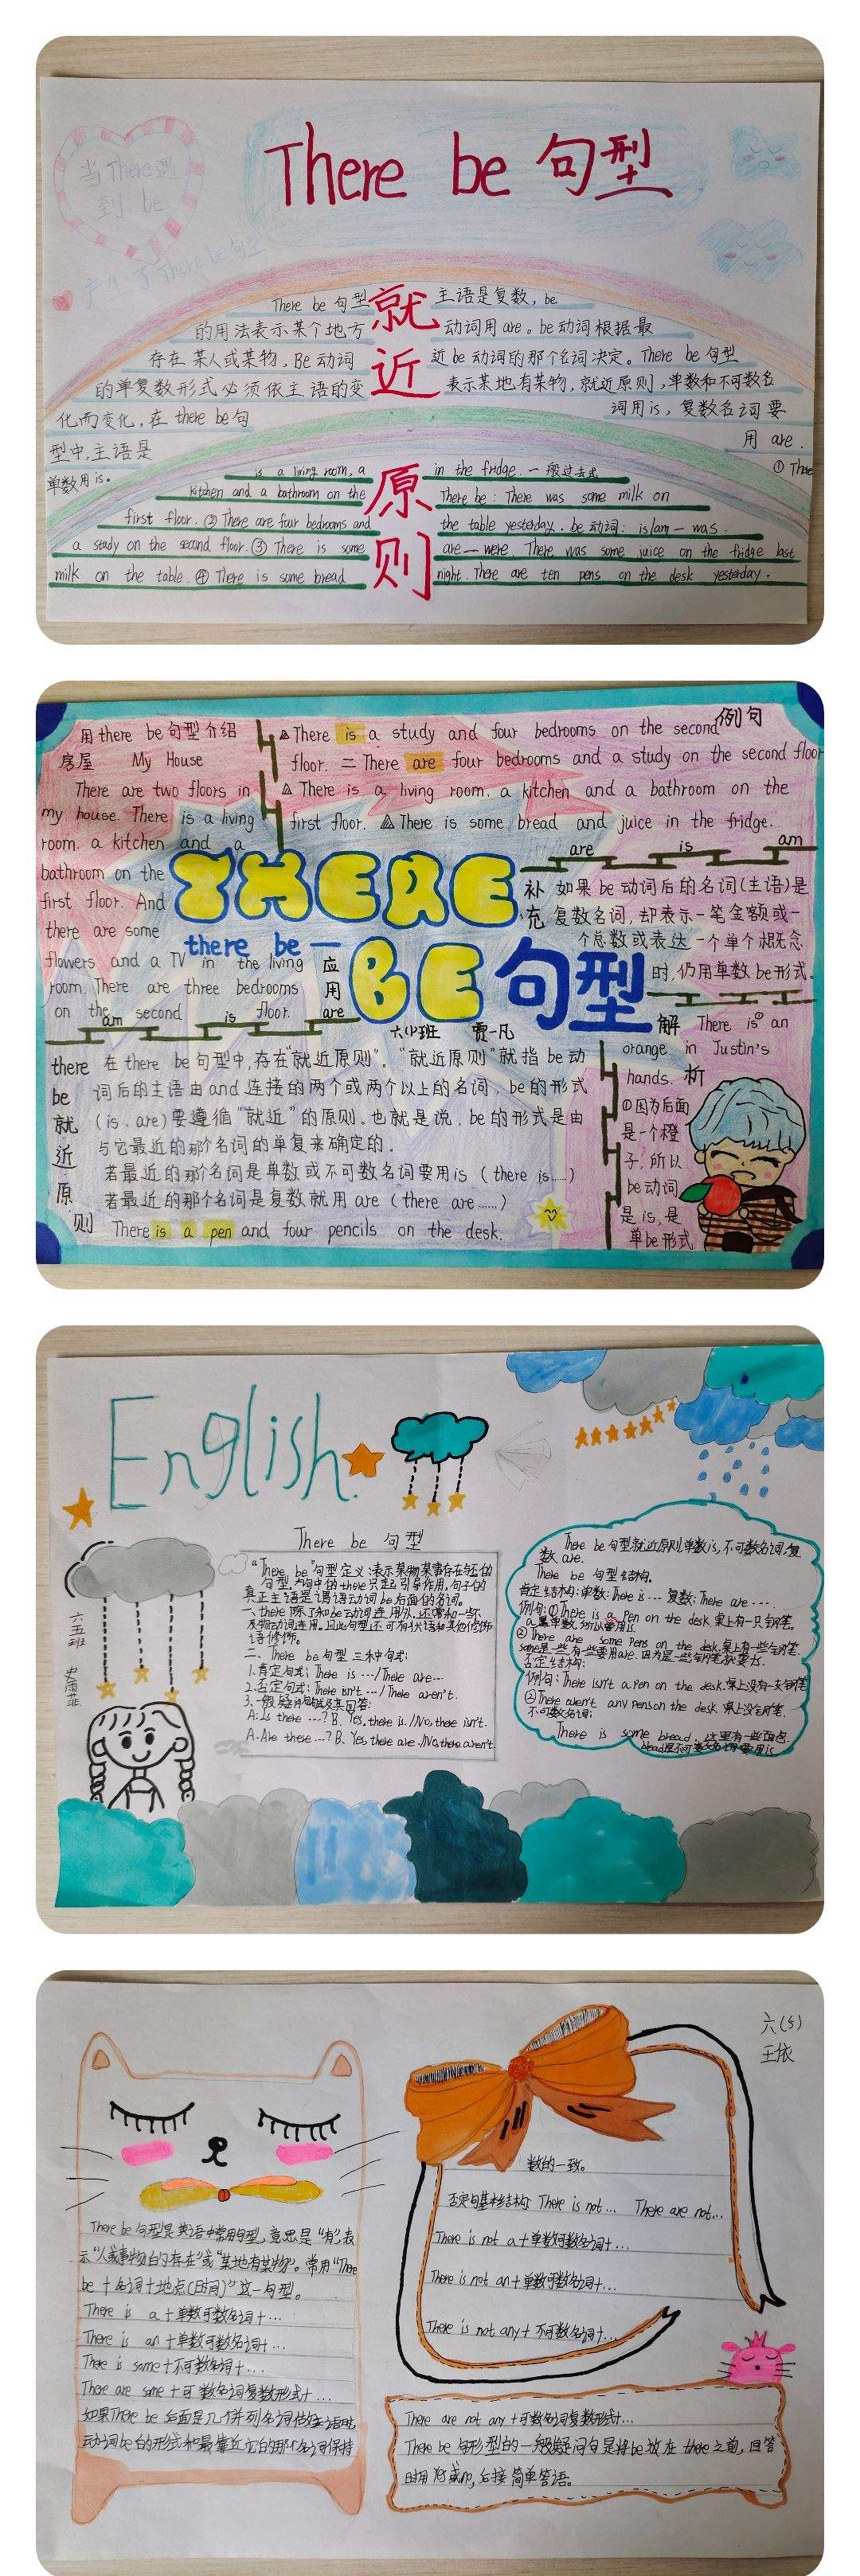 There be 句型
当There遇
到 be
产生了There be句型
就近原则
There be 句型
的用法表示某个地方
存在某人或某物，Be 动词
的单复数形式必须依主语的变
化而变化，在 there be句
型中，主语是
单数用is。
主语是复数，be
动词用are。be动词根据最
近be动词的那个名词决定。There be 句型
表示某地有某物，就近原则，单数和不可数名
词用is，复数名词要
用 are.
① There
is a living room, a
kitchen and a bathroom on the
first floor. ② There are four bedrooms and
a study on the second floor. ③ There is some
milk on the table. ④ There is some bread
in the fridge. 一般过去式
There be: There was some milk on
the table yesterday. be动词: is/am — was.
are — were. There was some juice on the fridge last
night. There are ten pens on the desk yesterday.
用there be句型介绍
房屋 My House
There are two floors in
my house. There is a living
room. a kitchen and a
bathroom on the
first floor. And
there are some
flowers and a TV in the living
room. There are three bedrooms
on the second floor.
am is are
例句
There is a study and four bedrooms on the second
floor. 二 There are four bedrooms and a study on the second floor
There is a living room. a kitchen and a bathroom on the
first floor. There is some bread and juice in the fridge.
are is am
THERE
BE句型
there be 一
应用
六(4)班 贾一凡
补充
如果 be 动词后的名词(主语)是
复数名词，却表示一笔金额或一
个总数或表达一个单个概念
时，仍用单数be形式。
there be 就近原则
在 there be句型中，存在"就近原则"。"就近原则"就指 be 动
词后的主语由and 连接的两个或两个以上的名词，be的形式
(is、are)要遵循"就近"的原则。也就是说，be的形式是由
与它最近的那个名词的单复来确定的。
若最近的那个名词是单数或不可数名词要用is (there is……)
若最近的那个名词是复数就用 are (there are……)
There is a pen and four pencils on the desk.
解析
There is① an
orange in Justin's
hands.
①因为后面
是一个橙
子，所以
be动词
是is，是
单be形式
English.
六五班
There be 句型
"There be"句型定义:表示某物某事存在与否的
句型，句中的there只起引导作用，句子的
真正主语是谓语动词be后面的名词。
一、there 除了和be动词连用外，还常和一些不
及物动词连用。且此句型还可有状语和其他修饰
语修饰。
二、There be句型 三种句式:
1.肯定句式: There is …/There are…
2.否定句式: There isn't …/There aren't.
3.一般疑问句式及其回答:
A: Is there …? B. Yes, there is. /No, there isn't.
A. Are there …? B. Yes, there are. /No, there aren't.
There be句型就近原则单数is，不可数名词，复
数 are.
There be 句型结构.
肯定结构:单数: There is … 复数: There are …
例句: ① There is a pen on the desk. 桌上有一只钢笔。
a是单数，所以要用is.
② There are some pens on the desk. 桌上有一些钢笔.
否定结构:
例句: There isn't a pen on the desk. 桌上没有一支钢笔
② There aren't any pens on the desk 桌上没钢笔.
不可数名词:
There is some bread. 这里有一些面包.
bread是不可数名词要用is
六(5)
王依
There be句型是英语中常用句型，意思是"有"，表
示"人或事物的存在"或"某地有某物"。常用"There
be ＋名词＋地点(时间)"这一句型。
There is a＋单数可数名词＋…
There is an＋单数可数名词＋…
There is some＋不可数名词＋…
There are some＋可数名词复数形式＋…
如果There be 后面是几个并列名词做主语时
动词be的形式和最靠近它的那个名词保持
数的一致。
否定句基本结构: There is not… There are not…
There is not a＋单数可数名词＋…
There is not an＋单数可数名词＋…
There is not any＋不可数名词＋…
There are not any＋可数名词复数形式＋…
There be 句形型的一般疑问句是将be放在 there之前，回答
时用 yes或no，后接简单答语。